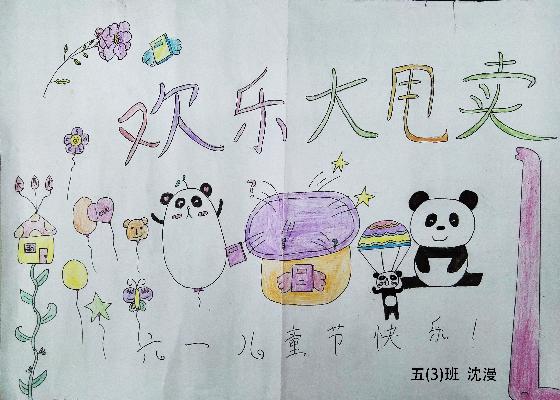 欢乐大甩卖
六一儿童节快乐！
五(3)班 沈漫